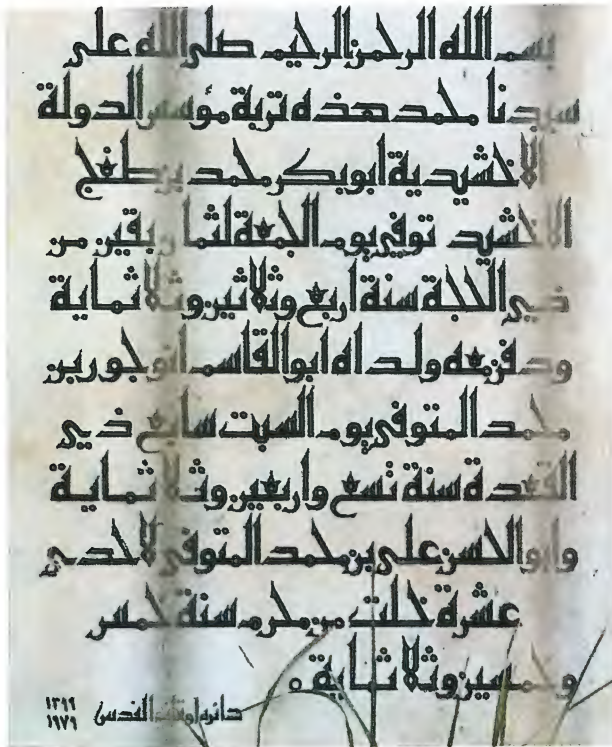 بسم الله الرحمن الرحيم صلى الله على
سيدنا محمد هذه تربة مؤسس الدولة
الاخشيدية ابو بكر محمد بن طغج
الاخشيد توفي يوم الجمعة لثمان بقين من
ذي الحجة سنة اربع وثلاثين وثلاثماية
ودفن معه ولداه ابو القاسم انوجور بن
محمد المتوفي يوم السبت سابع ذي
القعدة سنة تسع واربعين وثلاثماية
وابو الحسن علي بن محمد المتوفي لاحدي
عشرة خلت من محرم سنة خمس
وخمسين وثلاثماية
دائرة اوقاف القدس ١٣٩٩ ١٩٧٩